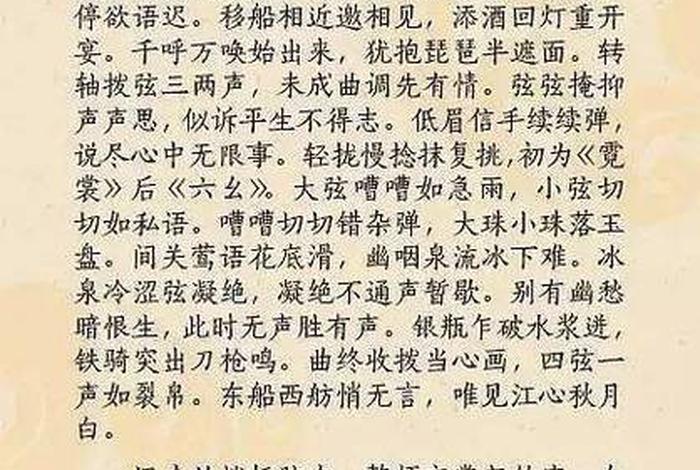 停欲语迟。移船相近邀相见，添酒回灯重开
宴。千呼万唤始出来，犹抱琵琶半遮面。转
轴拨弦三两声，未成曲调先有情。弦弦掩抑
声声思，似诉平生不得志。低眉信手续续弹，
说尽心中无限事。轻拢慢捻抹复挑，初为《霓
裳》后《六幺》。大弦嘈嘈如急雨，小弦切
切如私语。嘈嘈切切错杂弹，大珠小珠落玉
盘。间关莺语花底滑，幽咽泉流冰下难。冰
泉冷涩弦凝绝，凝绝不通声暂歇。别有幽愁
暗恨生，此时无声胜有声。银瓶乍破水浆迸，
铁骑突出刀枪鸣。曲终收拨当心画，四弦一
声如裂帛。东船西舫悄无言，唯见江心秋月
白。